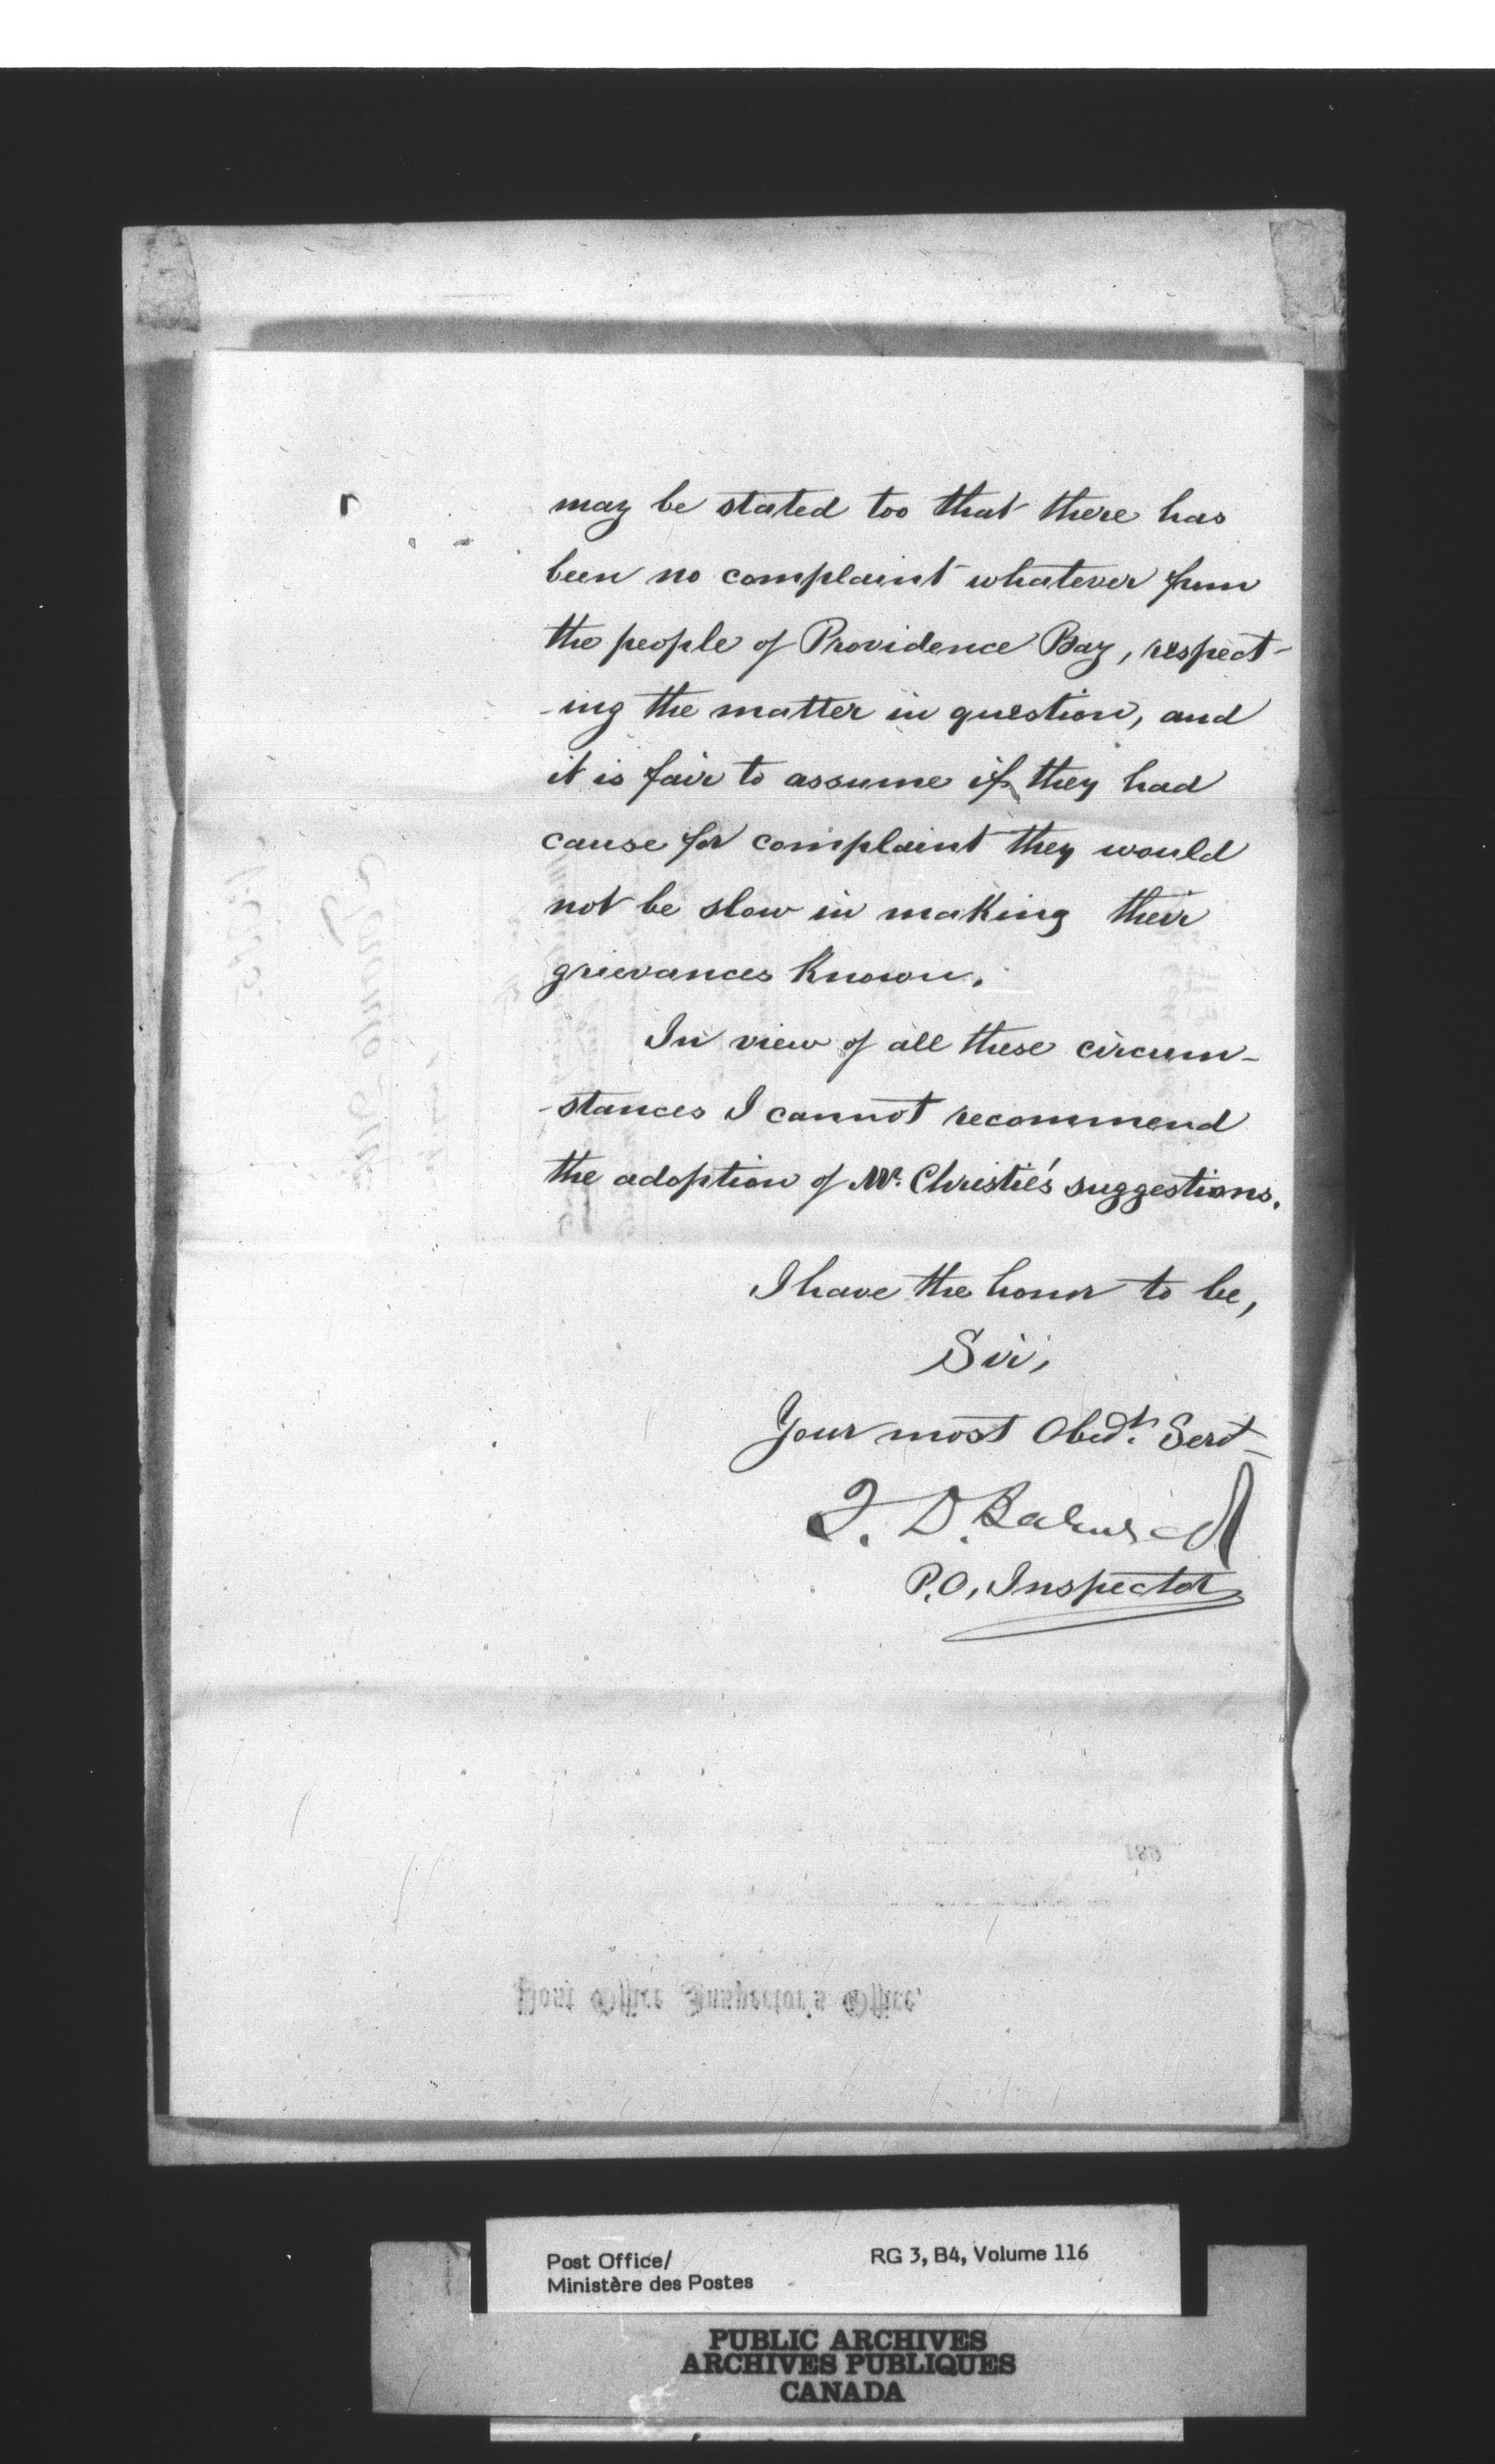 may be stated too that there has
been no complaint whatever from
the people of Providence Bay, respect-
-ing the matter in question, and
it is fair to assume if they had
cause for complaint they would
not be slow in making their
grievances known.
In view of all these circum-
-stances I cannot recommend
the adoption of Mr. Christie's suggestions.
I have the honor to be,
Sir,
Your most Obedt. Servt
D.
P.O. Inspector
Post Office Inspector's Office,
189
Post Office/
Ministère des Postes
RG 3, B4, Volume 116
PUBLIC ARCHIVES
ARCHIVES PUBLIQUES
CANADA